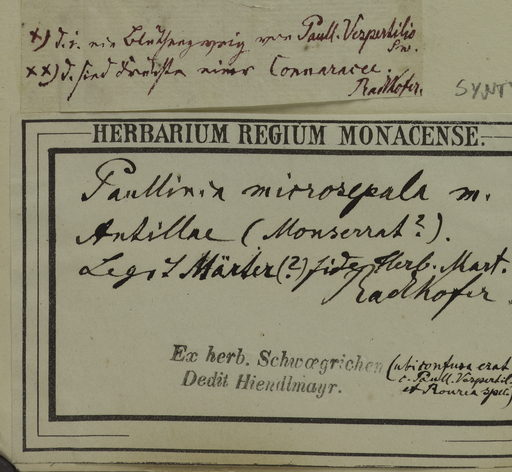 x) d. i. ein Blüthenzweig von Paull. Vespertilio
Sw.
xx) d. sind Früchte einer Connaracee.
Radlkofer.
SYNT
HERBARIUM REGIUM MONACENSE.
Paullinia microsepala m.
Antillae (Monserrat?).
Legit Märter(?) fide Herb. Mart.
Radlkofer.
Ex herb. Schwœgrichen (ubi confusa erat
Dedit Hiendlmayr. c. Paull. Vespertil.
et Rourea spec.)